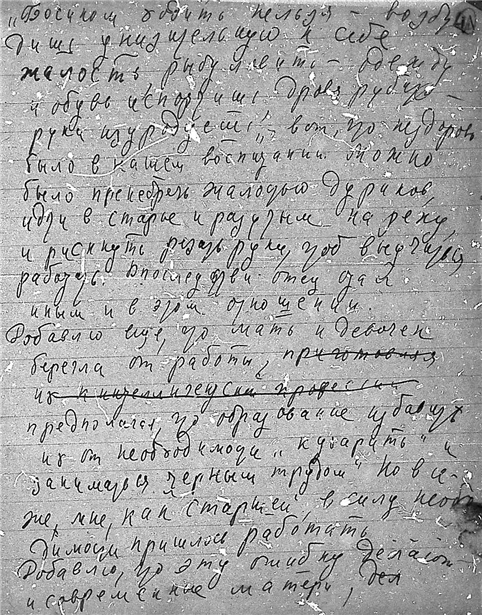 "Босиком ходить нельзя – возбу-
дишь унизительную к себе
жалость, рыбу ловить – одежду
и обувь испортишь, дрова рубить –
руки изуродуешь", вот, что нездорово
было в нашем воспитании. Можно
было пренебречь жалостью дураков,
идти в старье и разутым на реку,
и рискнуть резать руки, чтоб выучиться
работать. Впоследствии отец стал
иным и в этом отношении.
Добавлю еще, что мать и девочек
берегла от работы, приготовляя
их к интеллигентской профессии
предполагая, что образование избавит
их от необходимости "кухарить" и
заниматься "черным трудом" Но все-
же, мне, как старшей, в силу необхо
димости пришлось работать
Добавлю, что эту ошибку делают
и современные матери,